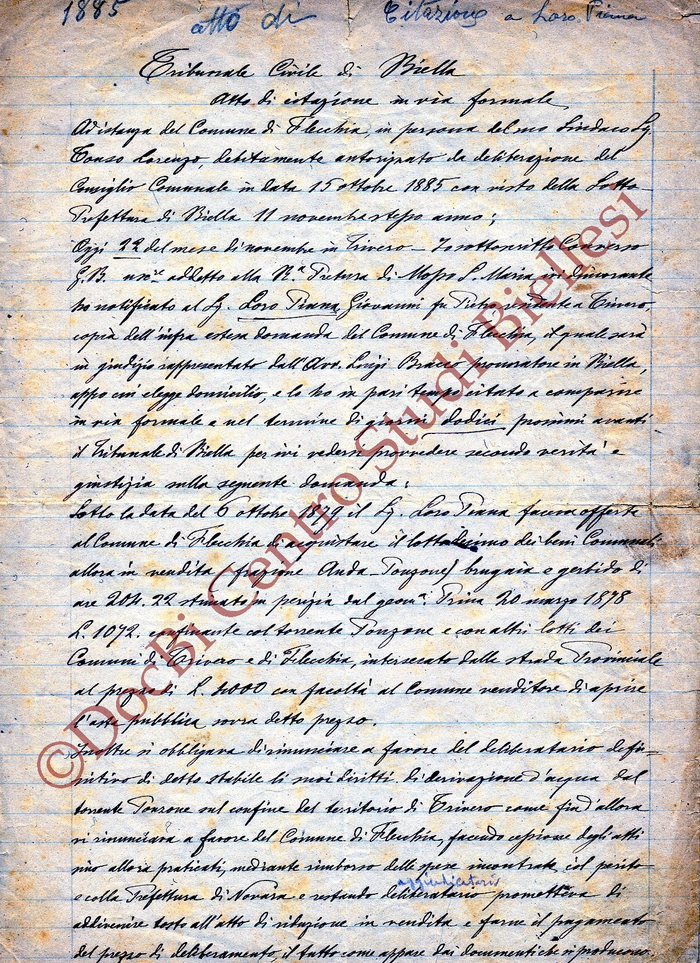 1885 atto di Citazione a Loro Piana
Tribunale Civile di Biella
Atto di citazione in via formale
Ad istanza del Comune di Flecchia, in persona del suo Sindaco Sg.
Tonso Lorenzo, debitamente autorizzato da deliberazione del
Consiglio Comunale in data 15 ottobre 1885 con visto della Sotto-
Prefettura di Biella 11 novembre stesso anno;
Oggi 22 del mese di novembre in Trivero - Io sottoscritto Converso
G.B. usc.re addetto alla R.a Pretura di Mosso S. Maria, ivi dimorante
ho notificato al Sg. Loro Piana Giovanni fu Pietro, residente a Trivero,
copia dell'infra estesa domanda del Comune di Flecchia, il quale sarà
in giudizio rappresentato dall'Avv. Luigi procuratore in Biella,
appo cui elegge domicilio, e lo ho in pari tempo citato a comparire
in via formale e nel termine di giorni dodici prossimi avanti
il Tribunale di Biella per ivi vedersi provvedere secondo verità e
giustizia sulla seguente domanda:
Sotto la data del 6 ottobre 1879 il Sg. Loro Piana faceva offerta
al Comune di Flecchia di acquistare il lotto decimo dei beni Comunali
allora in vendita (frazione Ponzone) brugaia e gerbido di
are 204.22 stimato in perizia dal geom.a Prina 20 marzo 1878
L. 1072. confinante col torrente Ponzone e con altri lotti dei
Comuni di Trivero e di Flecchia, intersecato dalla strada Provinciale
al prezzo di L. 4000 con facoltà al Comune venditore di aprire
l'asta pubblica sovra detto prezzo.
Inoltre si obbligava di rinunciare a favore del deliberatario defi-
nitivo di detto stabile li suoi diritti di derivazione d'acqua dal
torrente Ponzone sul confine del territorio di Trivero come fin d'allora
vi rinunciava a favore del Comune di Flecchia, facendo cessione degli atti
sino allora praticati, mediante rimborso delle spese incontrate col perito
aggiudicatario
e colla Prefettura di Novara e restando deliberatario prometteva di
addivenire tosto all'atto di riduzione in vendita e farne il pagamento
del prezzo di deliberamento, il tutto come appare dai documenti che si producono.
©DocBi Centro Studi Biellesi